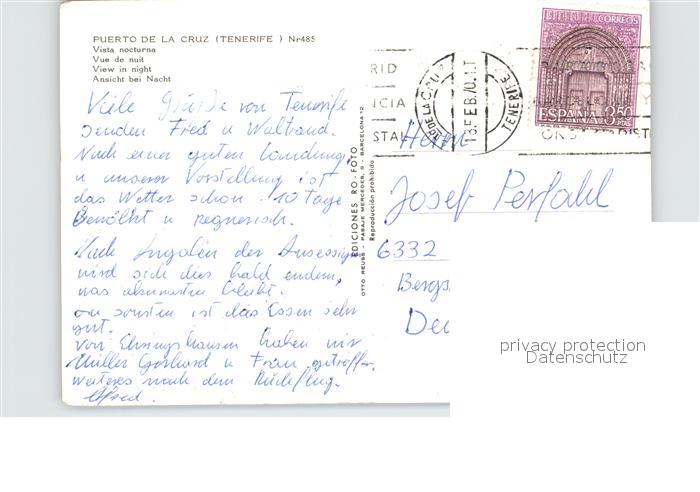 PUERTO DE LA CRUZ (TENERIFE ) Nr485
Vista nocturna
Vue de nuit
View in night
Ansicht bei Nacht
Viele Grüße von Tenerife
senden Fred u Waltraud.
Nach einer guten Landung,
u unserer Vorstellung ist
das Wetter schon 10 Tage
Bewölkt u regnerisch.
Nach Angaben der
wird sich dies bald endern,
was abzuwarten bleibt.
ansonsten ist das Essen sehr
gut.
von Ehringshausen haben wir
Müller Gerhard u Frau getroffen.
weiteres nach dem Rückflug.
Alfred.
EDICIONES RO-FOTO
OTTO REUSS - PASAJE MERCEDES, 9 - BARCELONA-12
Reproducción prohibido
CORREOS
ESPAÑA 3,50 PTAS
TENERIFE
Herrn
Josef Perfahl
6332
privacy protection
Datenschutz